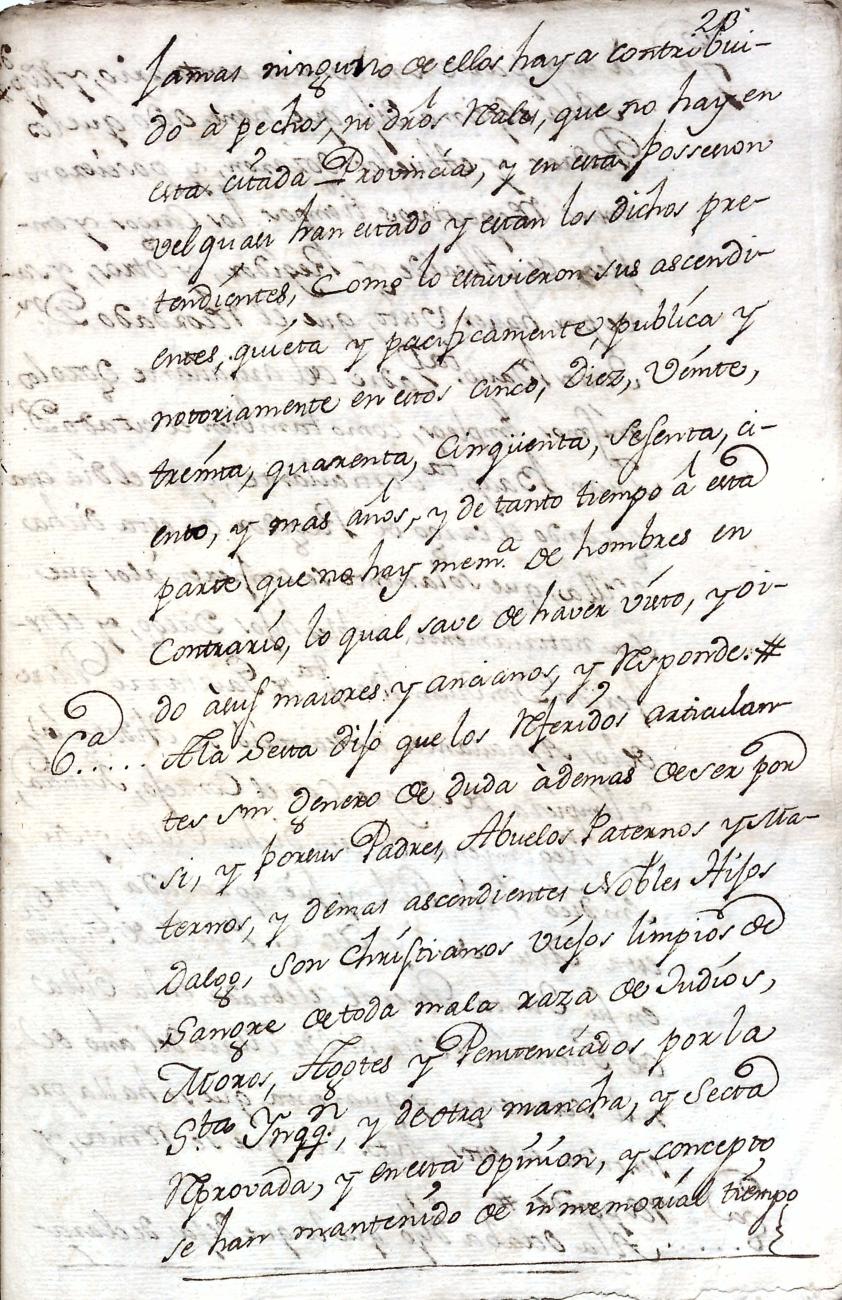 23
Jamas ninguno de ellos haya contribui-
do à pechos, ni dr̃os Rales, que no hay en
esta citada Provincia, y en esta possesion
vel quasi han estado y estan los dichos pre-
tendientes, Como lo estuvieron sus ascendi-
entes, quieta y pacificamente, publica y
notoriamente en estos cinco, Diez, Veinte,
treinta, quarenta, Cinqüenta, Sesenta, ci-
ento, y mas años, y de tanto tiempo à esta
parte que no hay mem.a de hombres en
Contrario, lo qual save de haver visto, y oi-
do à sus maiores y ancianos, y Responde. #
6a..... A la Sesta dijo que los Referidos articulan-
tes sin genero de duda àdemas de ser por
si, y por sus Padres, Abuelos Paternos y Ma-
ternos, y demas ascendientes Nobles Hijos
Dalgo, son Christianos Viejos limpios de
Sangre de toda mala raza de Judios,
Moros, Agotes y Penitenciados por la
S.ta Ynqq.n, y de otra mancha, y Secta
Reprovada, y en esta opinion, y concepto
se han mantenido de inmemorial tiempo